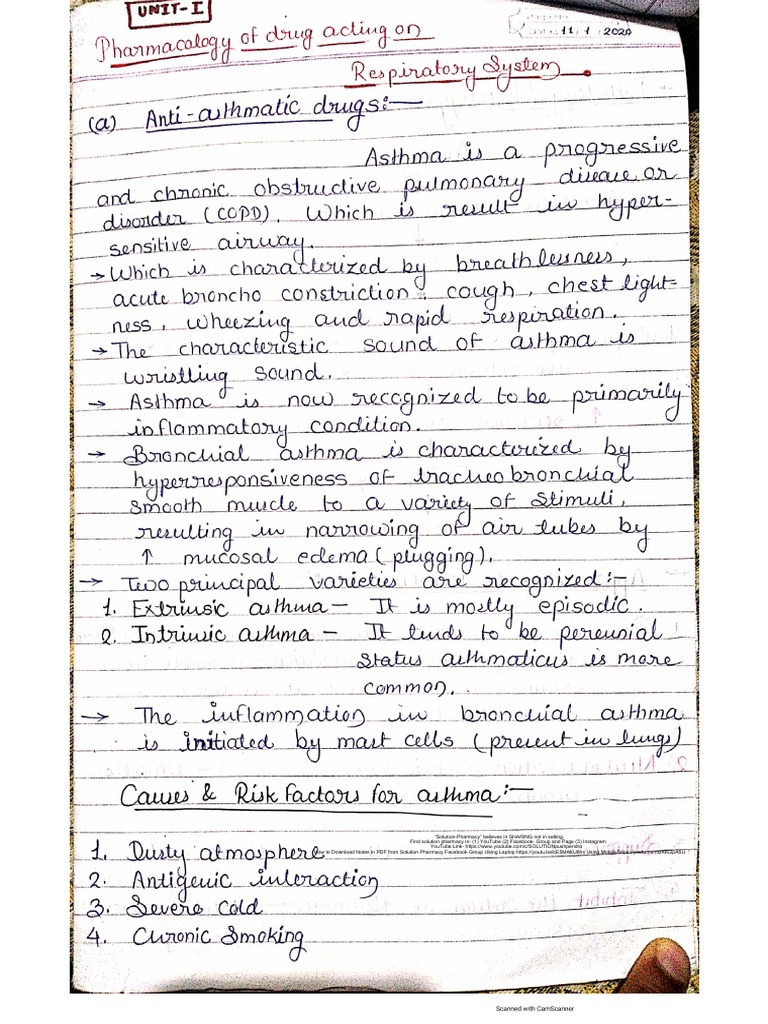 UNIT-I
11/1/2020
Pharmacology of drug acting on
Respiratory System.
(a) Anti-asthmatic drugs:—
Asthma is a progressive
and chronic obstructive pulmonary disease or
disorder (COPD). Which is result in hyper-
sensitive airway.
→ Which is characterized by breathlessness,
acute broncho constriction, cough, chest tight-
ness, wheezing and rapid respiration.
→ The characteristic sound of asthma is
wristling sound.
→ Asthma is now recognized to be primarily
inflammatory condition.
→ Bronchial asthma is characterized by
hyperresponsiveness of tracheobronchial
smooth muscle to a variety of stimuli,
resulting in narrowing of air tubes by
↑ mucosal edema (plugging).
→ Two principal varieties are recognized:—
1. Extrinsic asthma — It is mostly episodic.
2. Intrinsic asthma — It tends to be perennial
status asthmaticus is more
common.
→ The inflammation in bronchial asthma
is initiated by mast cells (present in lungs)
Causes & Risk Factors for asthma:—
"Solution-Pharmacy" believes in SHARING not in selling.
Find solution pharmacy in- (1) YouTube (2) Facebook- Group and Page (3) Instagram
YouTube Link- https://www.youtube.com/c/SOLUTIONpushpendra
to Download Notes in PDF from Solution Pharmacy Facebook Group Using Laptop
1. Dusty atmosphere
2. Antigenic interaction
3. Severe cold
4. Chronic Smoking
Scanned with CamScanner